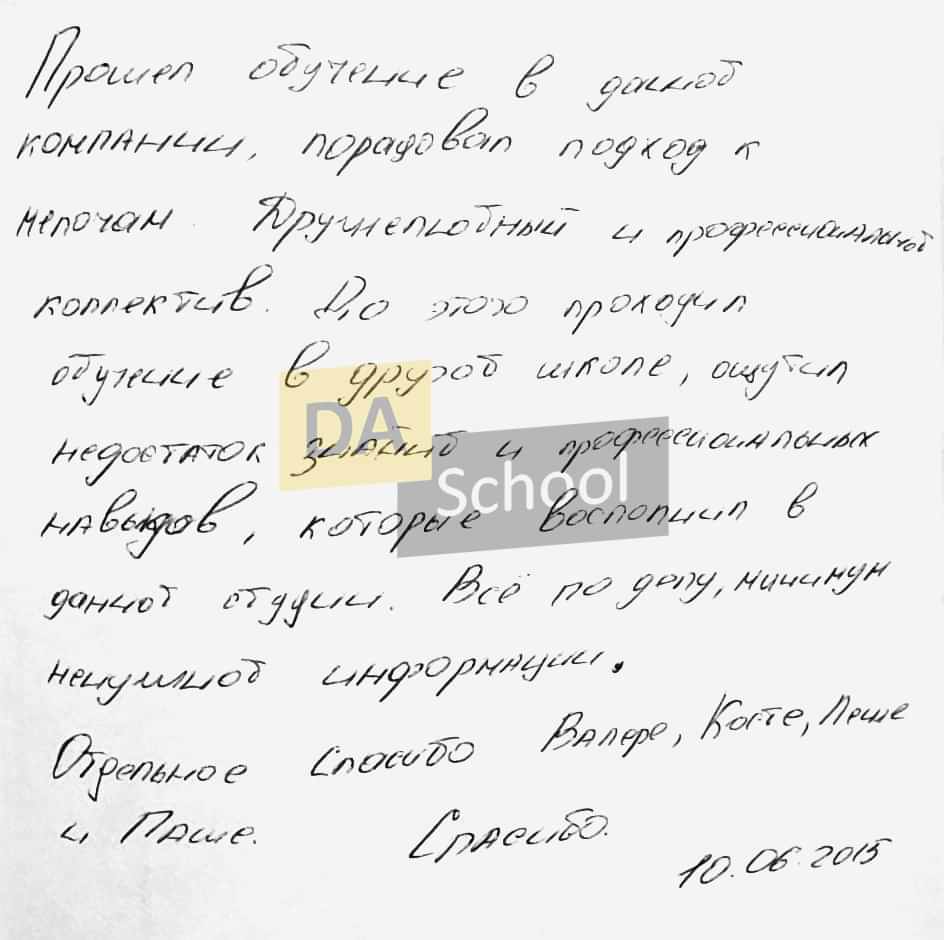 Прошел обучение в данной
компании, порадовал подход к
мелочам. Дружелюбный и профессиональный
коллектив. До этого проходил
обучение в другой школе, ощутил
DA
недостаток знаний и профессиональных
School
навыков, которые восполнил в
данной студии. Всё по делу, минимум
ненужной информации.
Отдельное спасибо Валере, Косте, Леше
и Паше. Спасибо.
10.06.2015